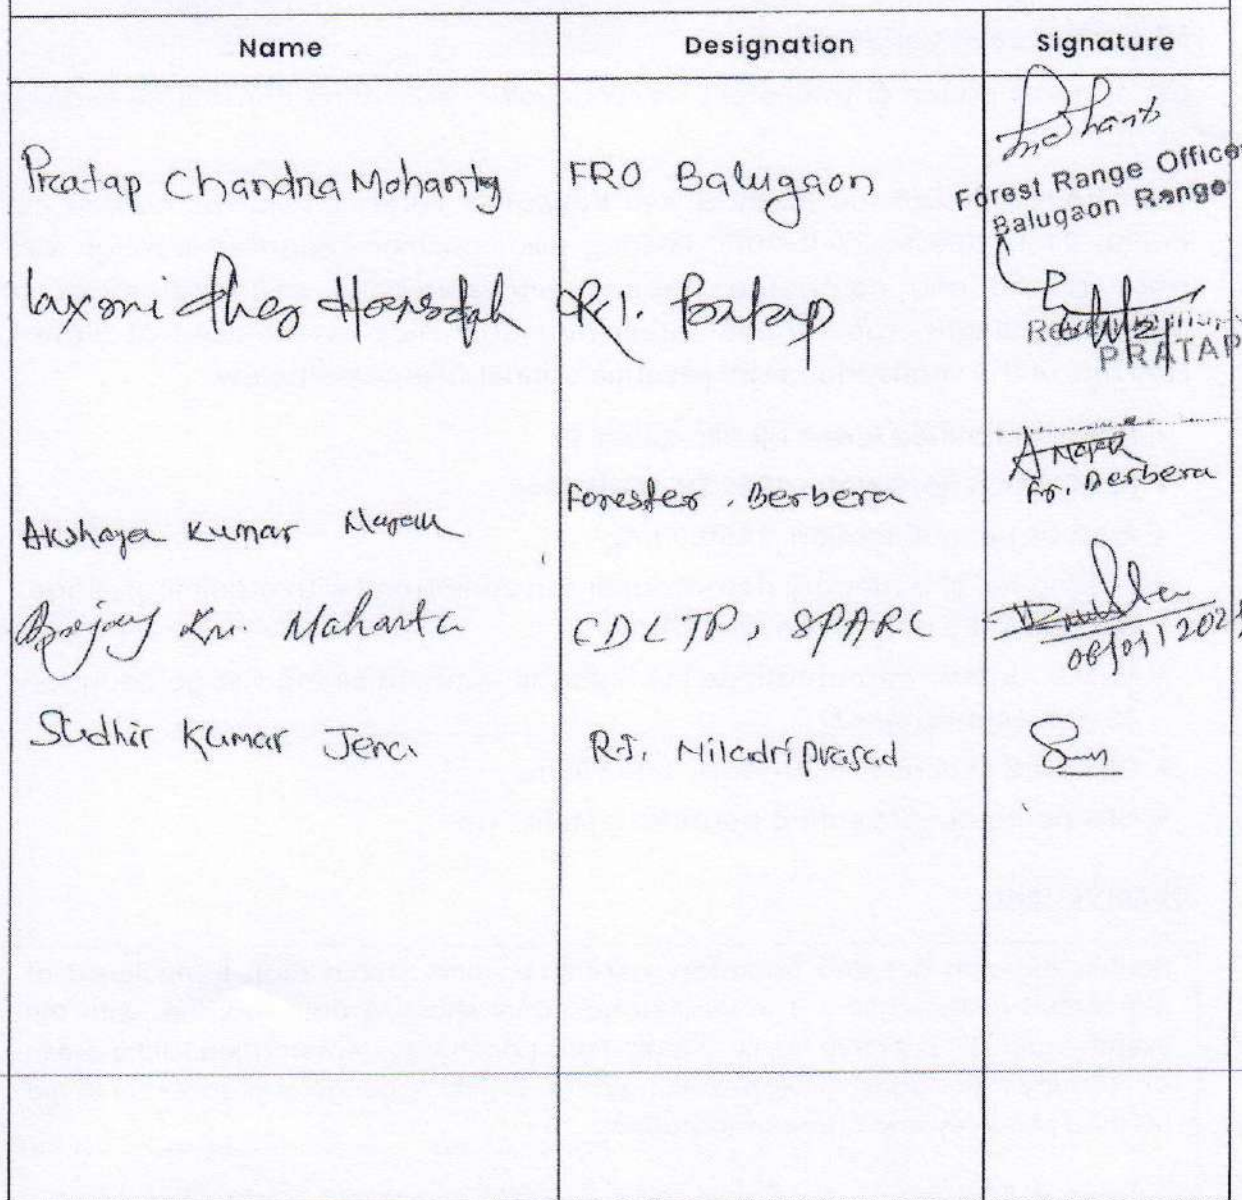 Name Designation Signature
Pratap Chandra Mohanty FRO Balugaon
Forest Range Officer
Balugaon Range
Laxmi R.I. Pratap
PRATAP
Akshaya Kumar Nayak Forester . Berbera A Nayak
Fr. Berbera
Bijay Kr. Mahanta CDLTP, SPARC
Sudhir Kumar Jena R.I. Niladriprasad